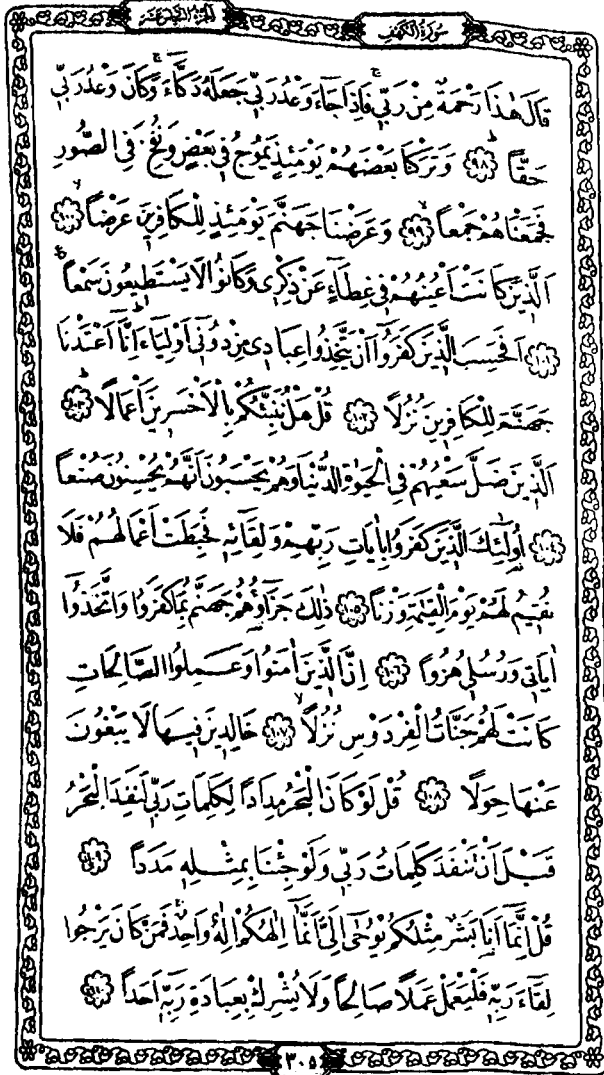 سُورَةُ الْكَهْفِ
قَالَ هٰذَا رَحْمَةٌ مِنْ رَبِّي فَاِذَا جَٓاءَ وَعْدُ رَبِّي جَعَلَهُ دَكَّٓاءَ وَكَانَ وَعْدُ رَبِّي
حَقًّا ﴿٩٨﴾ وَتَرَكْنَا بَعْضَهُمْ يَوْمَئِذٍ يَمُوجُ فِي بَعْضٍ وَنُفِخَ فِي الصُّورِ
فَجَمَعْنَاهُمْ جَمْعًا ﴿٩٩﴾ وَعَرَضْنَا جَهَنَّمَ يَوْمَئِذٍ لِلْكَافِرِينَ عَرْضًا ﴿١٠٠﴾
اَلَّذِينَ كَانَتْ اَعْيُنُهُمْ فِي غِطَٓاءٍ عَنْ ذِكْرِي وَكَانُوا لَا يَسْتَطِيعُونَ سَمْعًا
﴿١٠١﴾ اَفَحَسِبَ الَّذِينَ كَفَرُٓوا اَنْ يَتَّخِذُوا عِبَادِي مِنْ دُونِٓي اَوْلِيَٓاءَ اِنَّٓا اَعْتَدْنَا
جَهَنَّمَ لِلْكَافِرِينَ نُزُلًا ﴿١٠٢﴾ قُلْ هَلْ نُنَبِّئُكُمْ بِالْاَخْسَرِينَ اَعْمَالًا ﴿١٠٣﴾
اَلَّذِينَ ضَلَّ سَعْيُهُمْ فِي الْحَيٰوةِ الدُّنْيَا وَهُمْ يَحْسَبُونَ اَنَّهُمْ يُحْسِنُونَ صُنْعًا
﴿١٠٤﴾ اُو۬لٰٓئِكَ الَّذِينَ كَفَرُوا بِاٰيَاتِ رَبِّهِمْ وَلِقَٓائِهِ فَحَبِطَتْ اَعْمَالُهُمْ فَلَا
نُقِيمُ لَهُمْ يَوْمَ الْقِيٰمَةِ وَزْنًا ﴿١٠٥﴾ ذٰلِكَ جَزَٓاؤُ۬هُمْ جَهَنَّمُ بِمَا كَفَرُوا وَاتَّخَذُٓوا
اٰيَاتِي وَرُسُلِي هُزُوًا ﴿١٠٦﴾ اِنَّ الَّذِينَ اٰمَنُوا وَعَمِلُوا الصَّالِحَاتِ
كَانَتْ لَهُمْ جَنَّاتُ الْفِرْدَوْسِ نُزُلًا ﴿١٠٧﴾ خَالِدِينَ فِيهَا لَا يَبْغُونَ
عَنْهَا حِوَلًا ﴿١٠٨﴾ قُلْ لَوْ كَانَ الْبَحْرُ مِدَادًا لِكَلِمَاتِ رَبِّي لَنَفِدَ الْبَحْرُ
قَبْلَ اَنْ تَنْفَدَ كَلِمَاتُ رَبِّي وَلَوْ جِئْنَا بِمِثْلِهِ مَدَدًا ﴿١٠٩﴾
قُلْ اِنَّمَٓا اَنَا بَشَرٌ مِثْلُكُمْ يُوحٰٓى اِلَيَّ اَنَّمَٓا اِلٰهُكُمْ اِلٰهٌ وَاحِدٌ فَمَنْ كَانَ يَرْجُوا
لِقَٓاءَ رَبِّهِ فَلْيَعْمَلْ عَمَلًا صَالِحًا وَلَا يُشْرِكْ بِعِبَادَةِ رَبِّهِ اَحَدًا ﴿١١٠﴾
٣٠٥